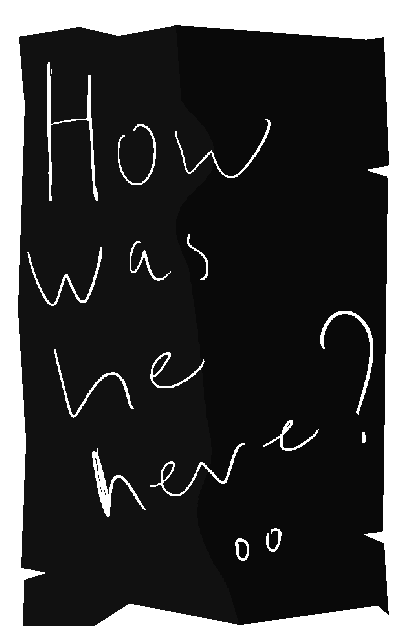 How
was
he
here?
oo